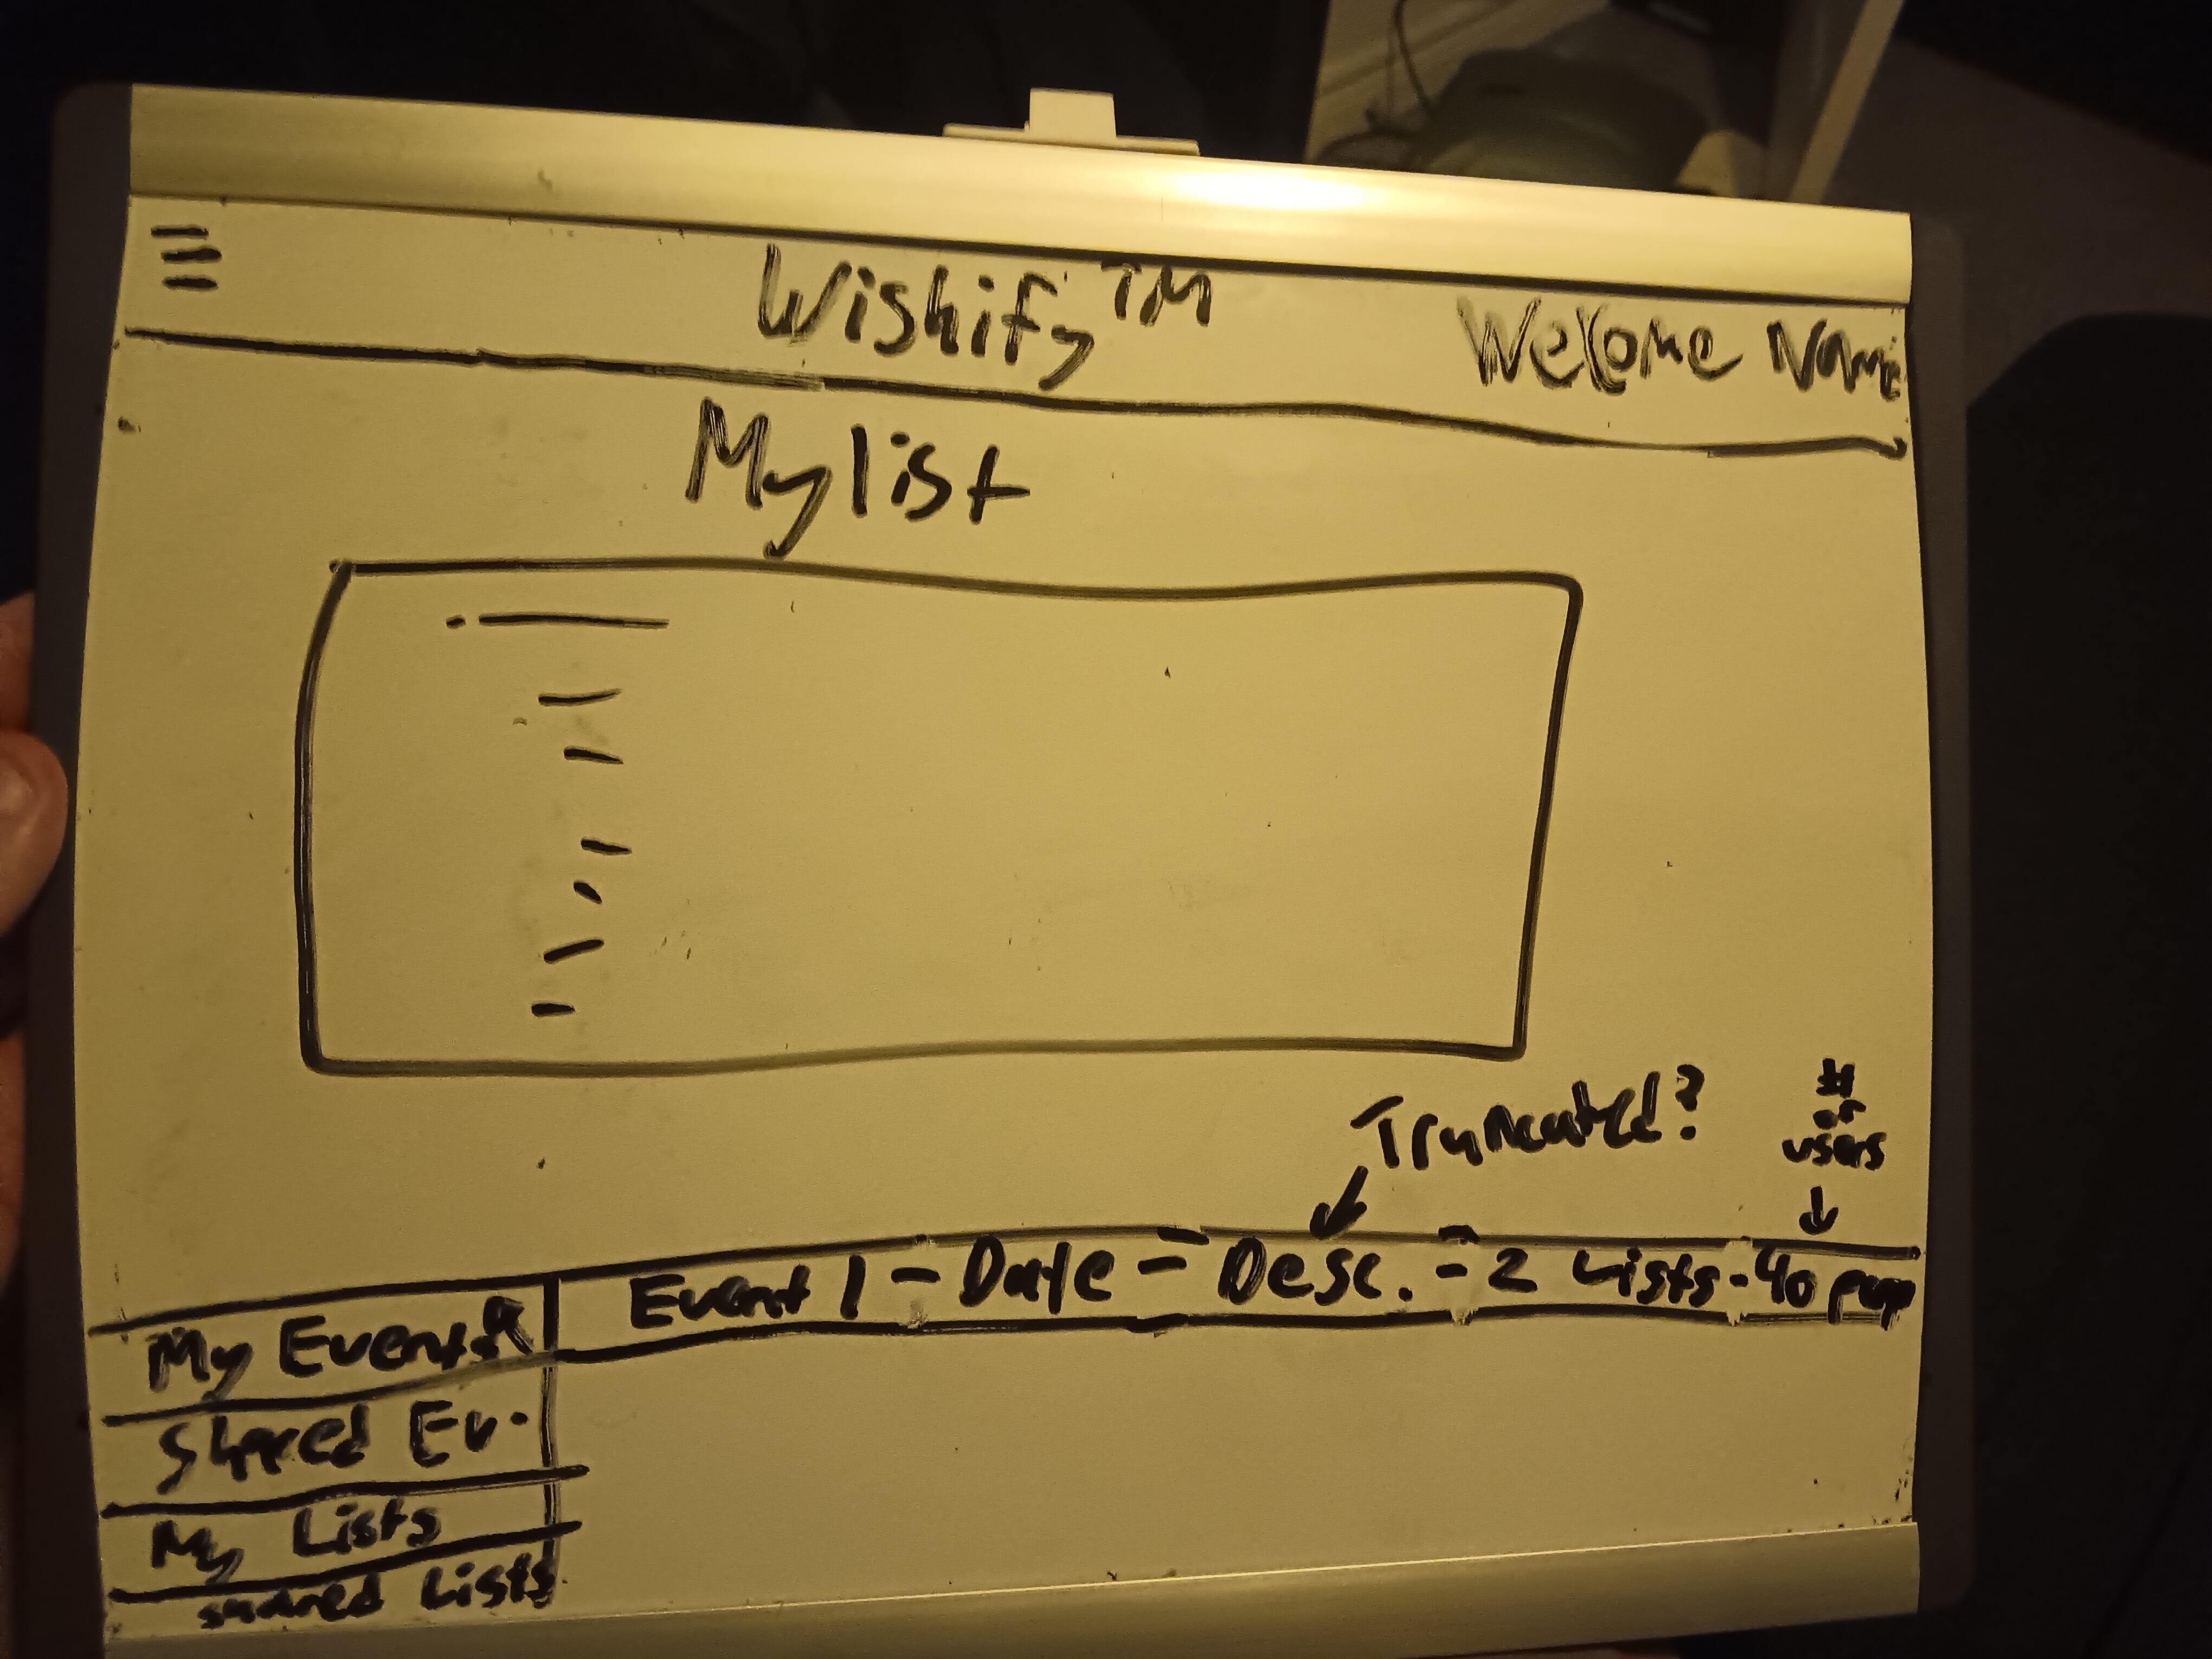 Wishify™
Welcome Name
My list
Truncated?
#
of
users
Event 1 - Date - Desc. - 2 Lists - 40
My Events
Shared Ev.
My Lists
shared Lists